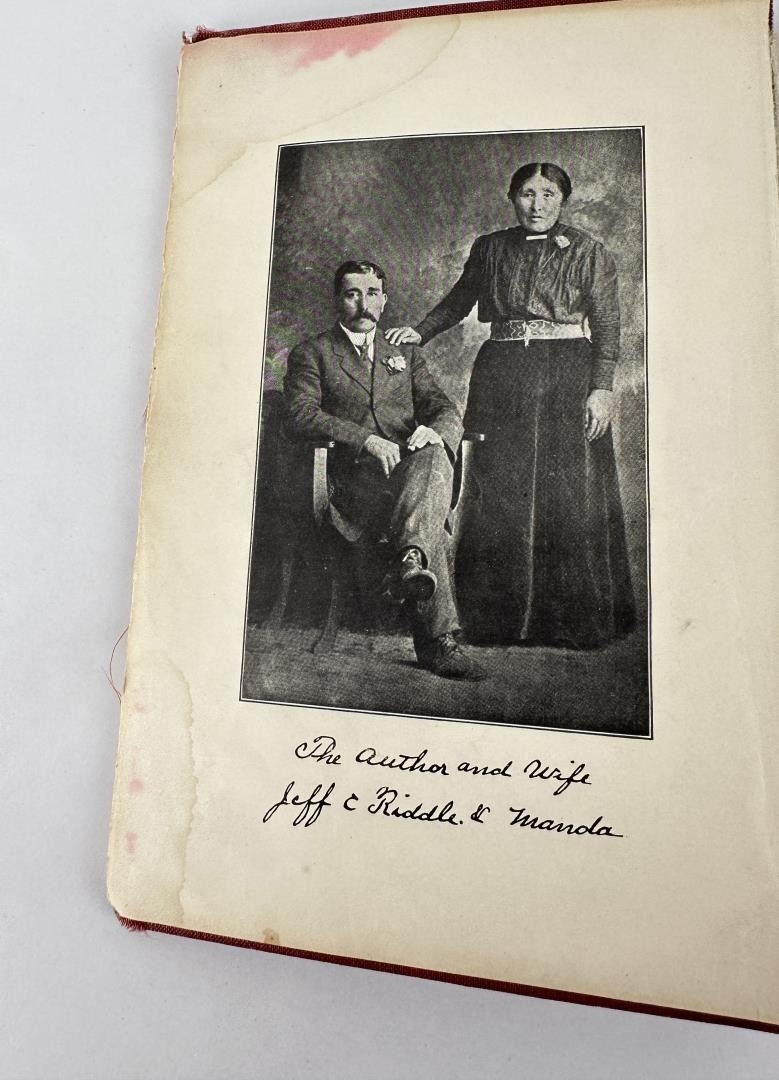 The Author and Wife
Jeff C Riddle. & Manda